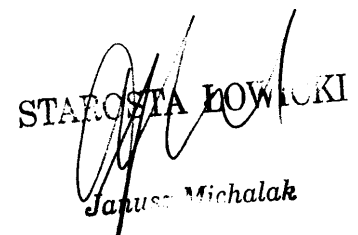 STAROSTA ŁOWICKI
Janusz Michalak